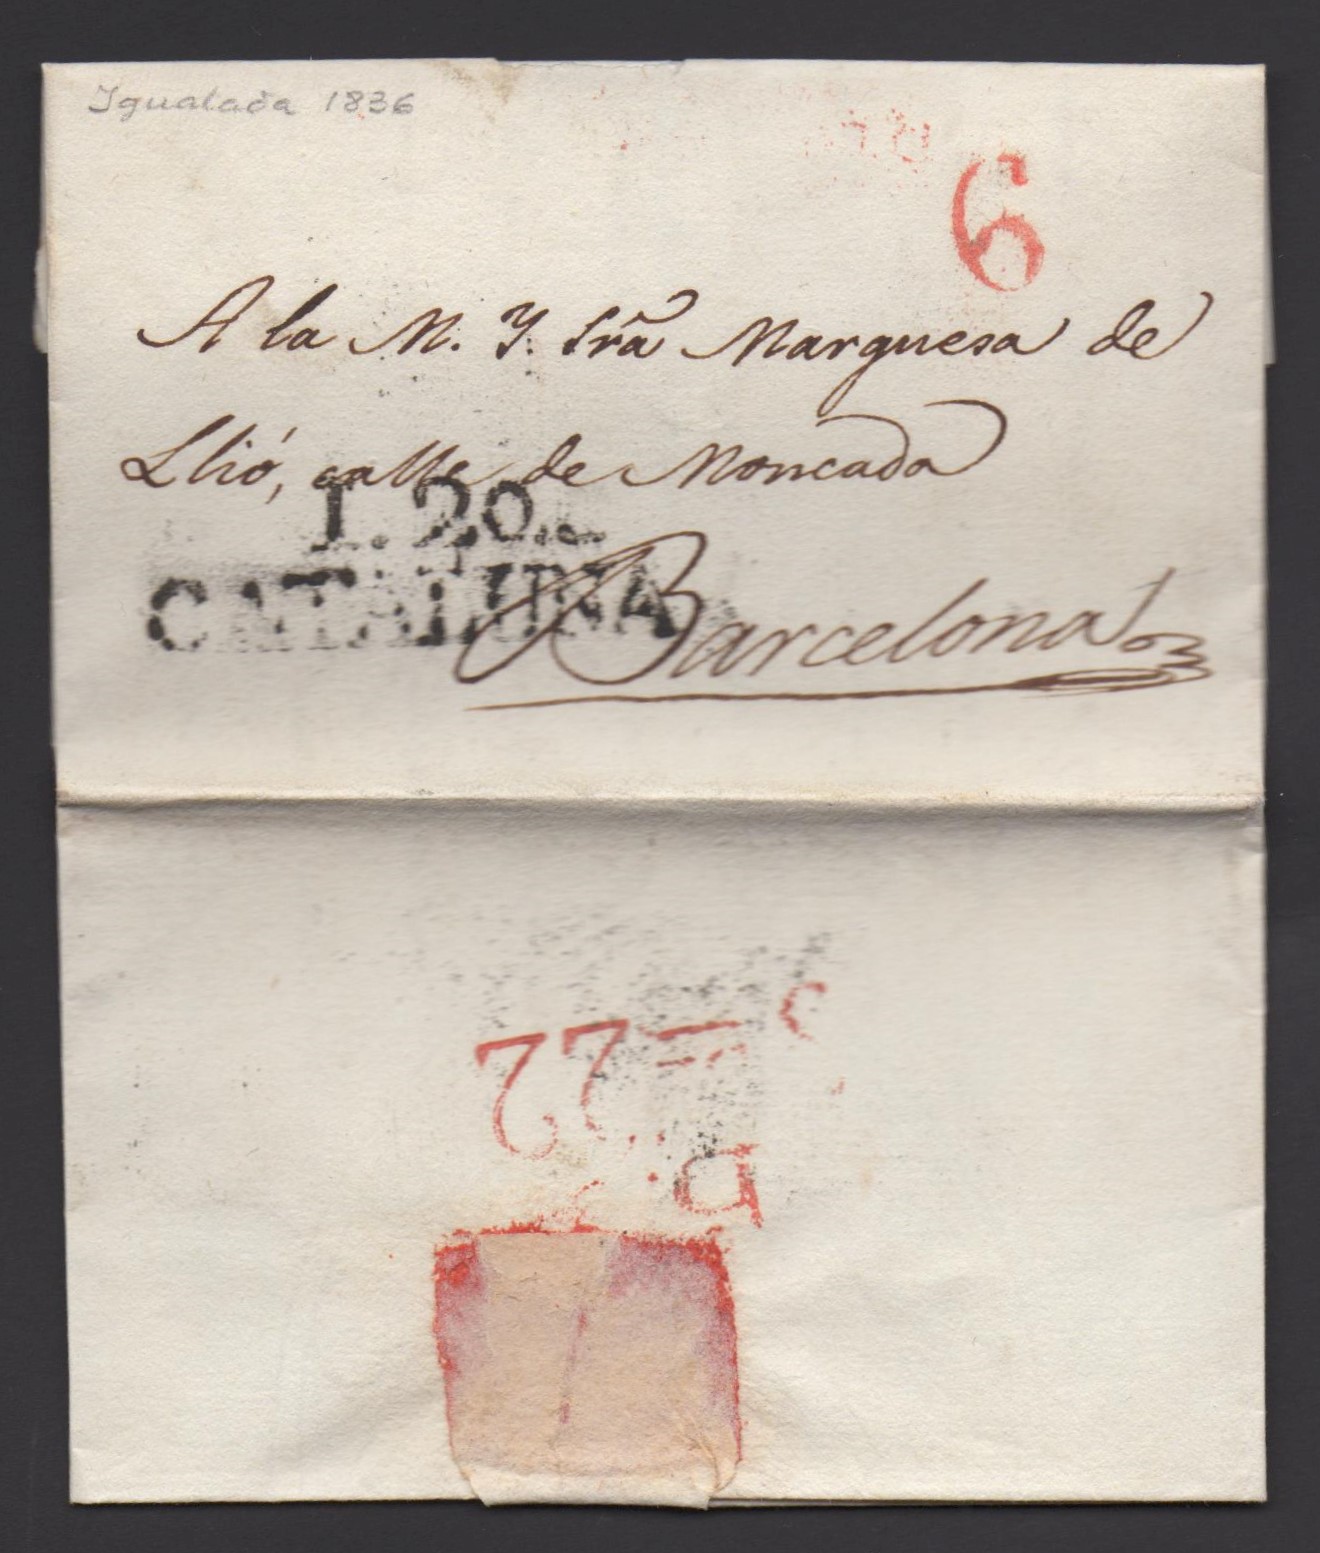 Igualada 1836
6
A la M. Y. Srã Marquesa de
Llió, calle de Moncada
I. 20.
CATALUÑA
Barcelona